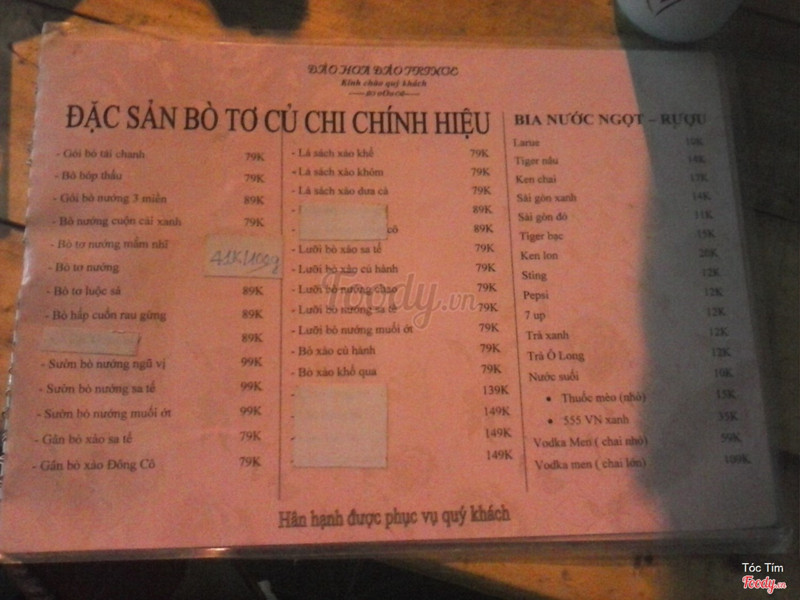 ĐÀO HOA ĐẢO
Kính chào quý khách
ĐẶC SẢN BÒ TƠ CỦ CHI CHÍNH HIỆU
- Gỏi bò tái chanh 79K
- Bò bóp thấu 79K
- Gỏi bò nướng 3 miền 89K
- Bò nướng cuộn cải xanh 79K
- Bò tơ nướng mắm nhĩ
- Bò tơ nướng
41K/100g
- Bò tơ luộc sả 89K
- Bò hấp cuốn rau gừng 89K
89K
- Sườn bò nướng ngũ vị 99K
- Sườn bò nướng sa tế 99K
- Sườn bò nướng muối ớt 99K
- Gân bò xào sa tế 79K
- Gân bò xào Đông Cô 79K
- Lá sách xào khế 79K
- Lá sách xào khóm 79K
- Lá sách xào dưa cà 79K
- 89K
- cô 89K
- Lưỡi bò xào sa tế 79K
- Lưỡi bò xào củ hành 79K
- Lưỡi bò nướng chao 79K
- Lưỡi bò nướng sa tế 79K
- Lưỡi bò nướng muối ớt 79K
- Bò xào củ hành 79K
- Bò xào khổ qua 79K
- 139K
- 149K
- 149K
- 149K
BIA NƯỚC NGỌT – RƯỢU
Larue 10K
Tiger nâu 14K
Ken chai 17K
Sài gòn xanh 14K
Sài gòn đỏ 11K
Tiger bạc 15K
Ken lon 20K
Sting 12K
Pepsi 12K
7 up 12K
Trà xanh 12K
Trà Ô Long 12K
Nước suối 10K
• Thuốc mèo (nhỏ) 15K
• 555 VN xanh 35K
Vodka Men ( chai nhỏ) 59K
Vodka men ( chai lớn) 109K
Hân hạnh được phục vụ quý khách
Foody.vn
Tóc Tím
Foody.vn